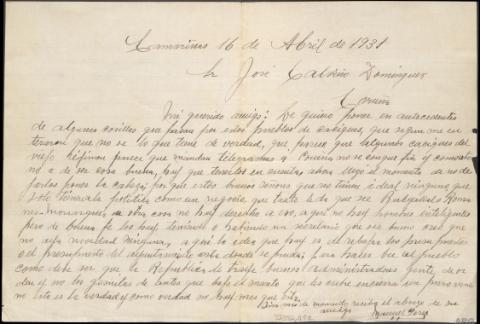 Camariñas 16 de Abril de 1931
Sr José Calviño Domínguez
Coruña
Mi querido amigo: Le quiero poner en antecedentes
de algunas cosillas que pasan por estos pueblos de caciques, que según me en
teraron que no se lo que tiene de verdad, que parece que algunos caciques del
viejo Régimen parece que mandan telegramas a Coruña no se con que fin y como esto
no a de ser cosa buena, hay que tenerlos en cuenta, ahora llegó el momento a no de
jarlos poner la cabeza por que estos buenos señores que no tienen ideal ninguno que
solo la política como un negocio, que tanto le da que sea Radical
monarquica, a ésta con no hay derecho a eso, a aquí no hay hombres inteligentes
pero de buena fe los hay, y habiendo un secretario que sea bueno creo que
no novedad ninguna, aquí la idea que hay es de rebajar los presupuestos
el presupuesto del ayuntamiento hasta donde se pueda, para hacer ver al pueblo
como debe ser que la Republica les traiga buenos administradores gente de or
den y no los de antes que bajo el manto que les cubre
esta es la verdad y como verdad no hay mas que
Sin más de momento reciba el abrazo de su
amigo
Manuel Perez